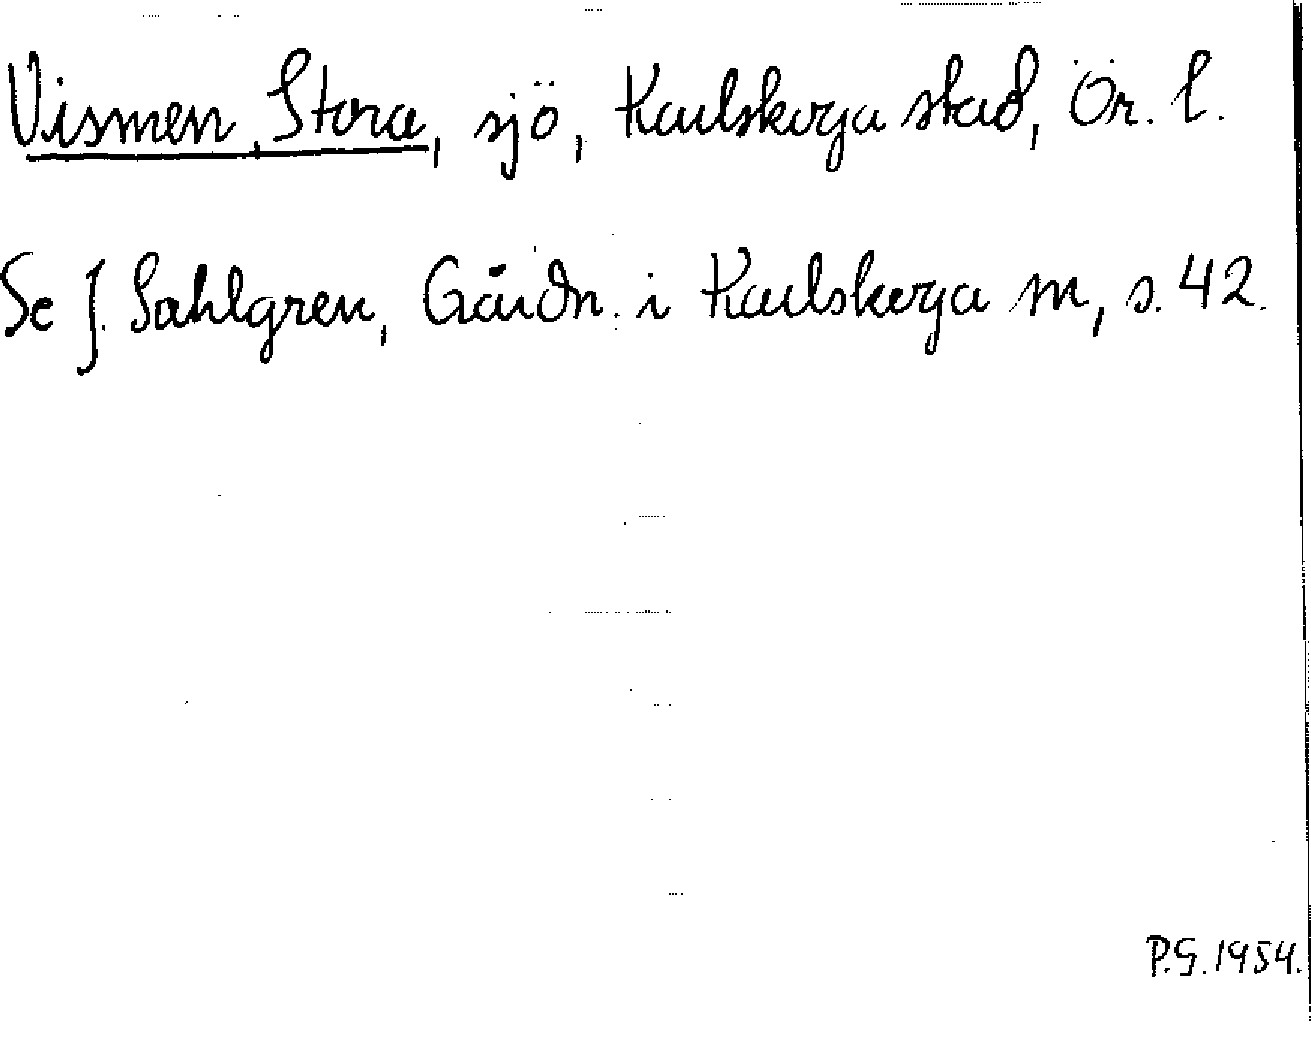 Vismen, Stora, sjö, Karlskoga stad, Ör. l.
Se J. Sahlgren, Gårdn. i Karlskoga m, s. 42.
P.G. 1954.